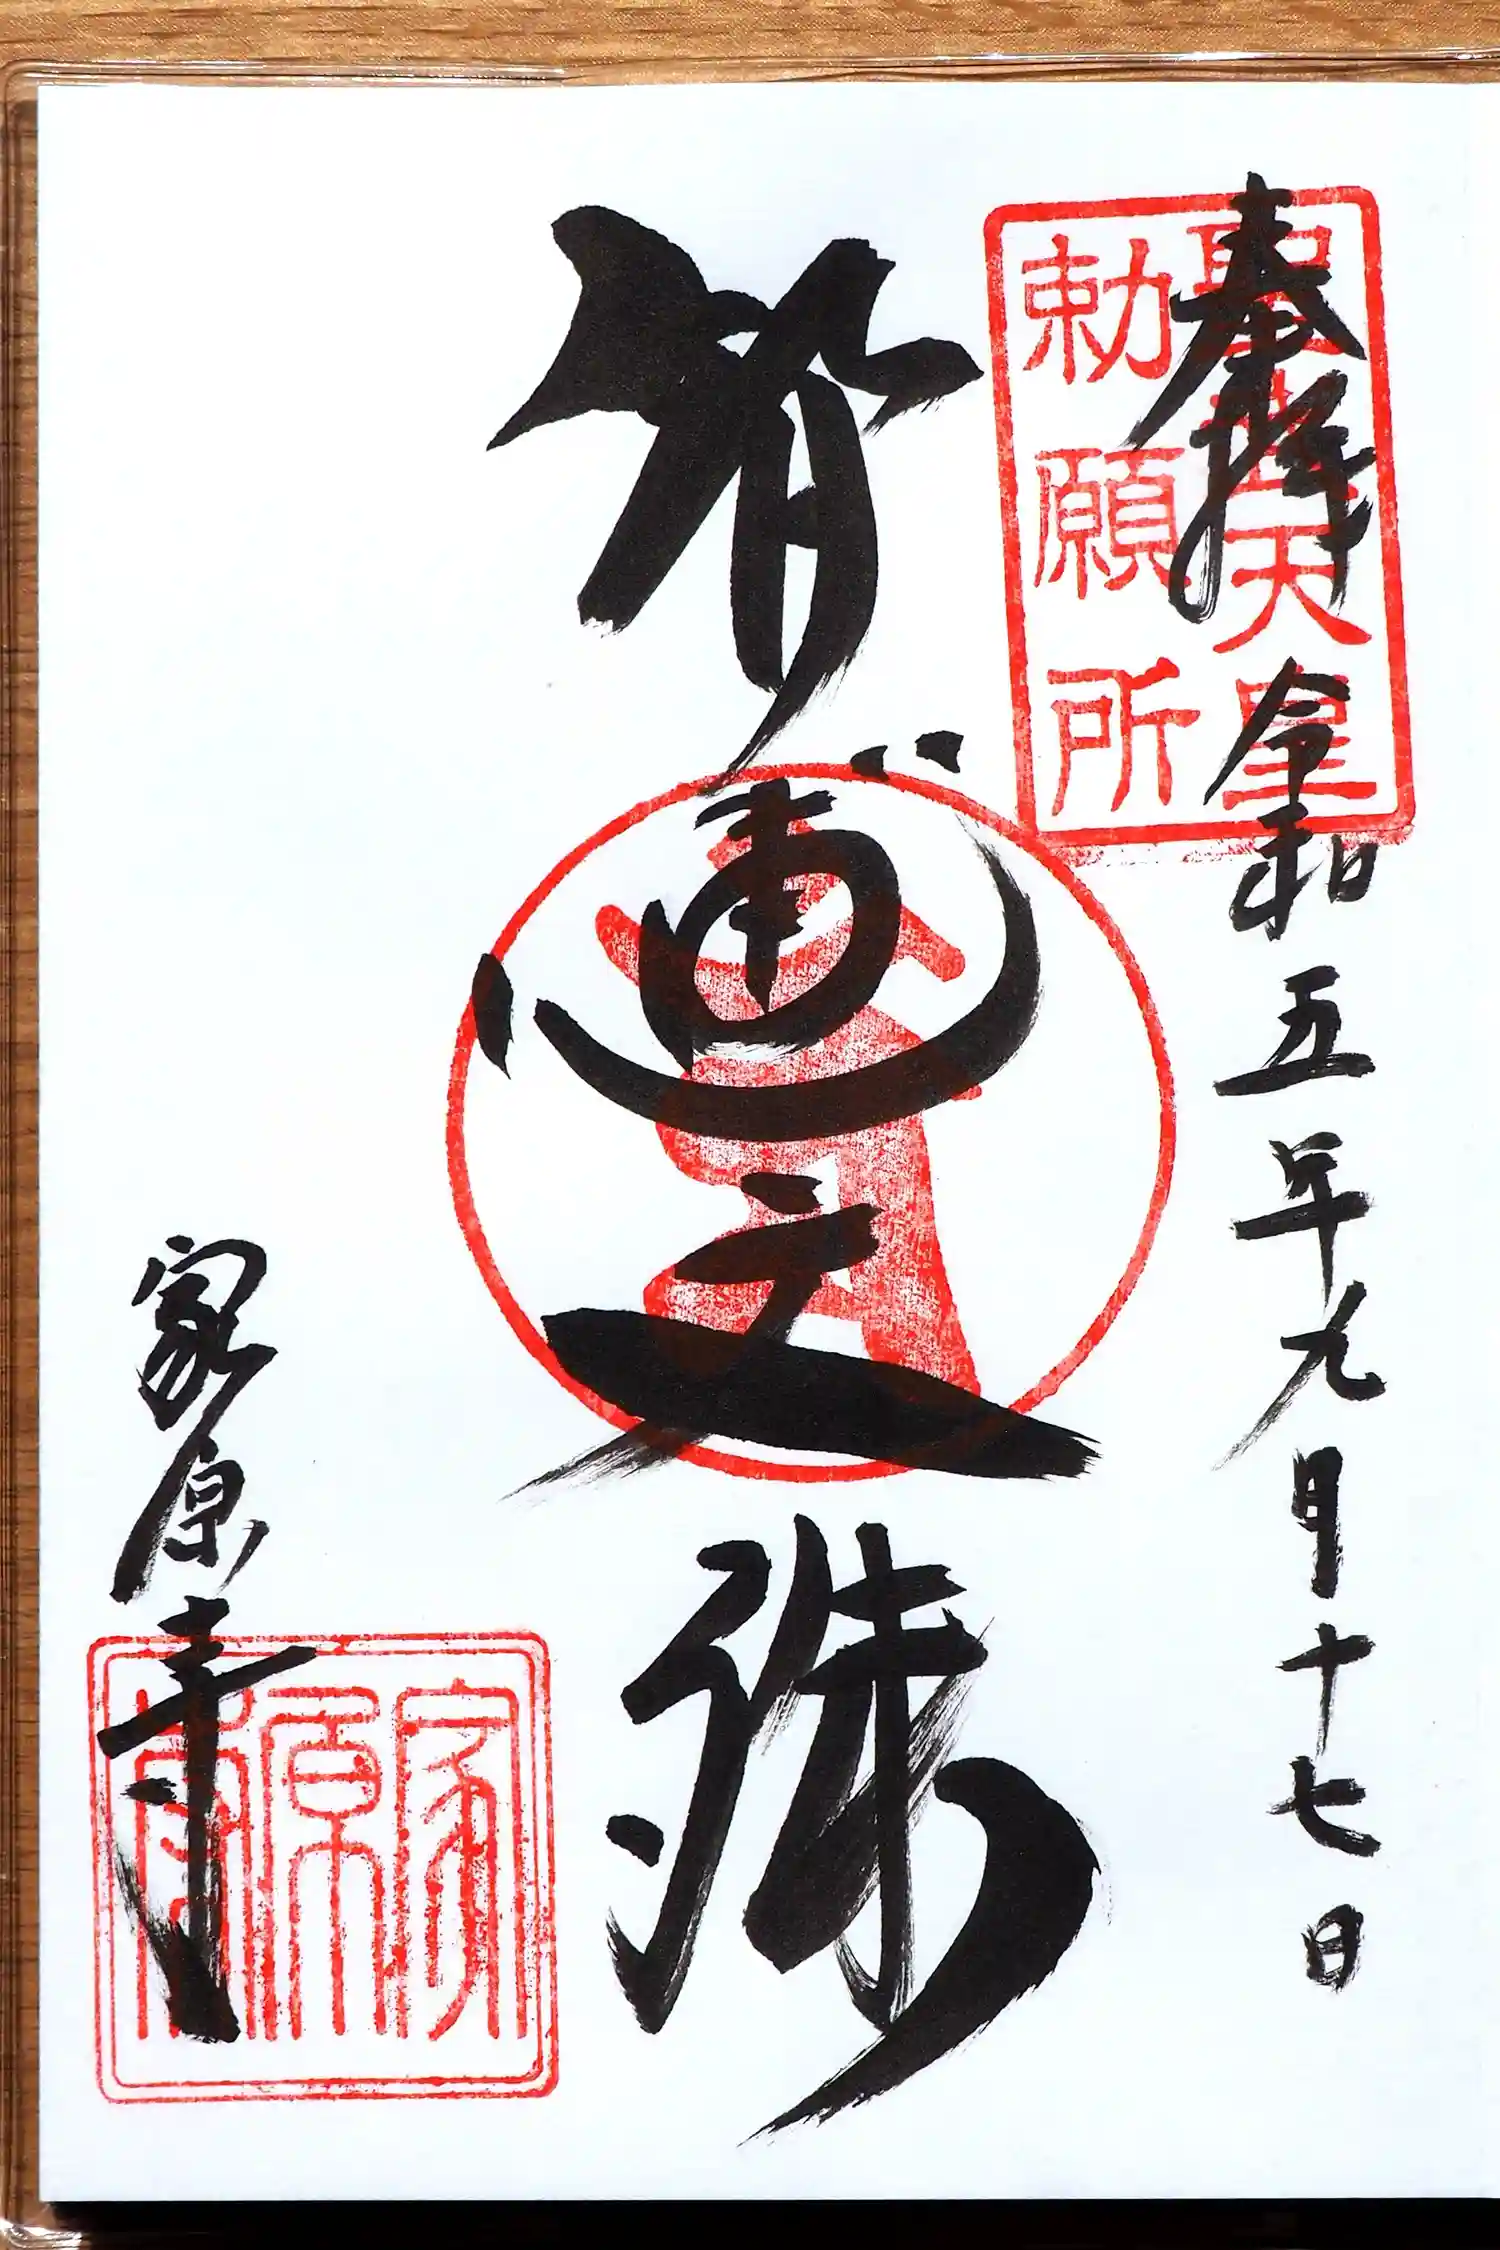 奉拝 令和五年九月十七日
聖武天皇
勅願所
智恵文殊
家原寺
家原寺